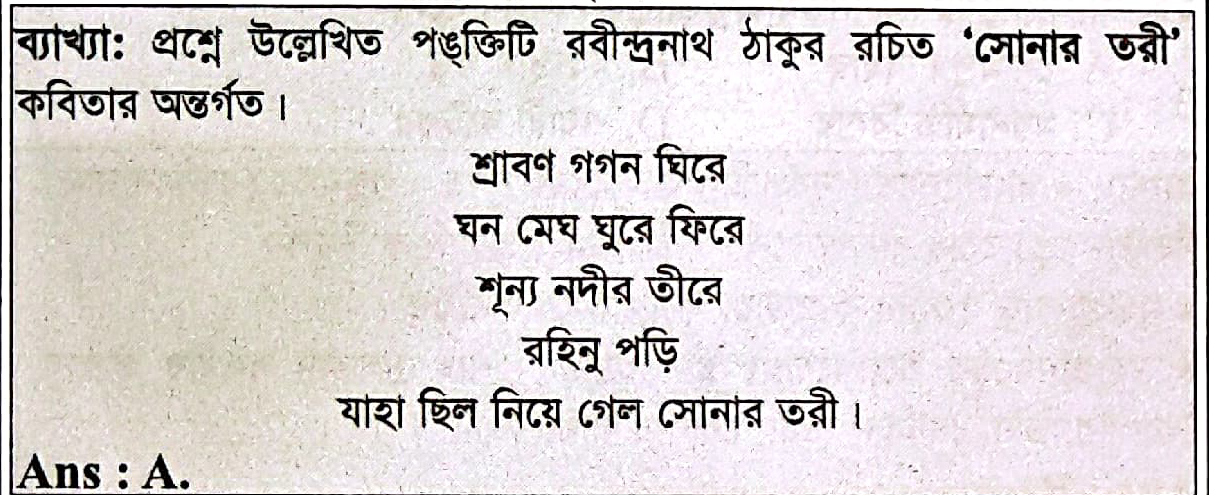 ব্যাখ্যা: প্রশ্নে উল্লেখিত পঙ্‌ক্তিটি রবীন্দ্রনাথ ঠাকুর রচিত ‘সোনার তরী’
কবিতার অন্তর্গত।
শ্রাবণ গগন ঘিরে
ঘন মেঘ ঘুরে ফিরে
শূন্য নদীর তীরে
রহিনু পড়ি
যাহা ছিল নিয়ে গেল সোনার তরী।
Ans : A.